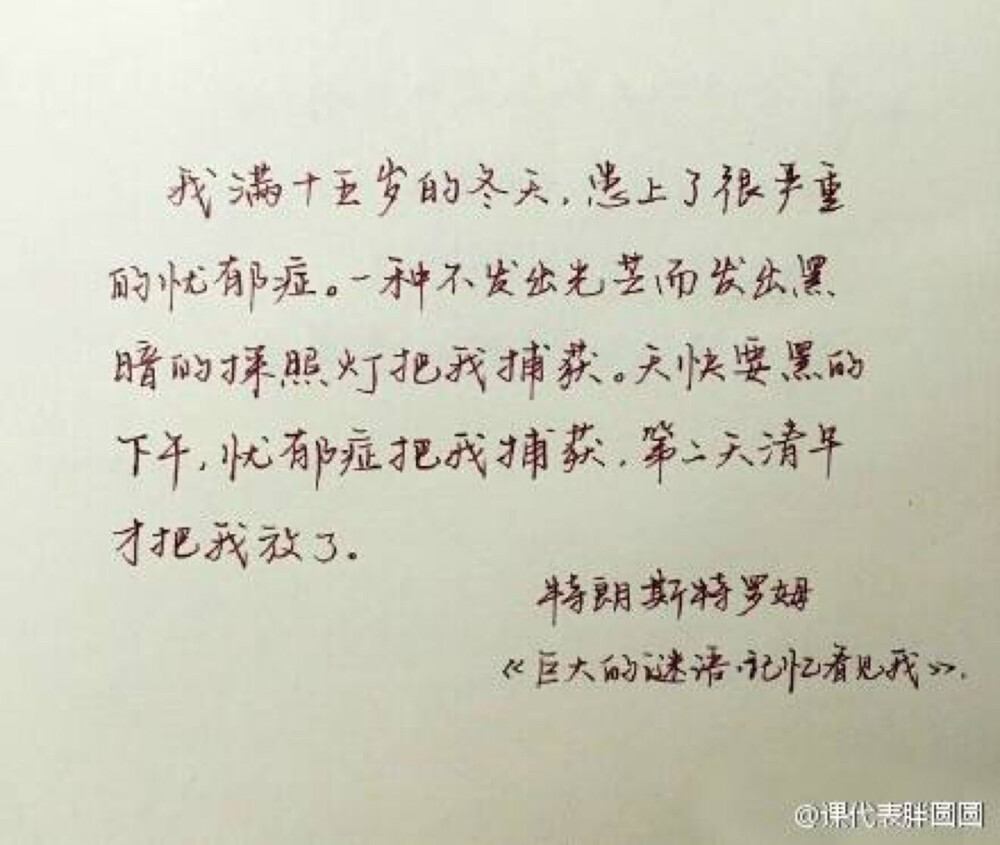 我满十五岁的冬天，患上了很严重
的忧郁症。一种不发出光芒而发出黑
暗的探照灯把我捕获。天快要黑的
下午，忧郁症把我捕获，第二天清早
才把我放了。
特朗斯特罗姆
《巨大的谜语·记忆看见我》.
@课代表胖圆圆